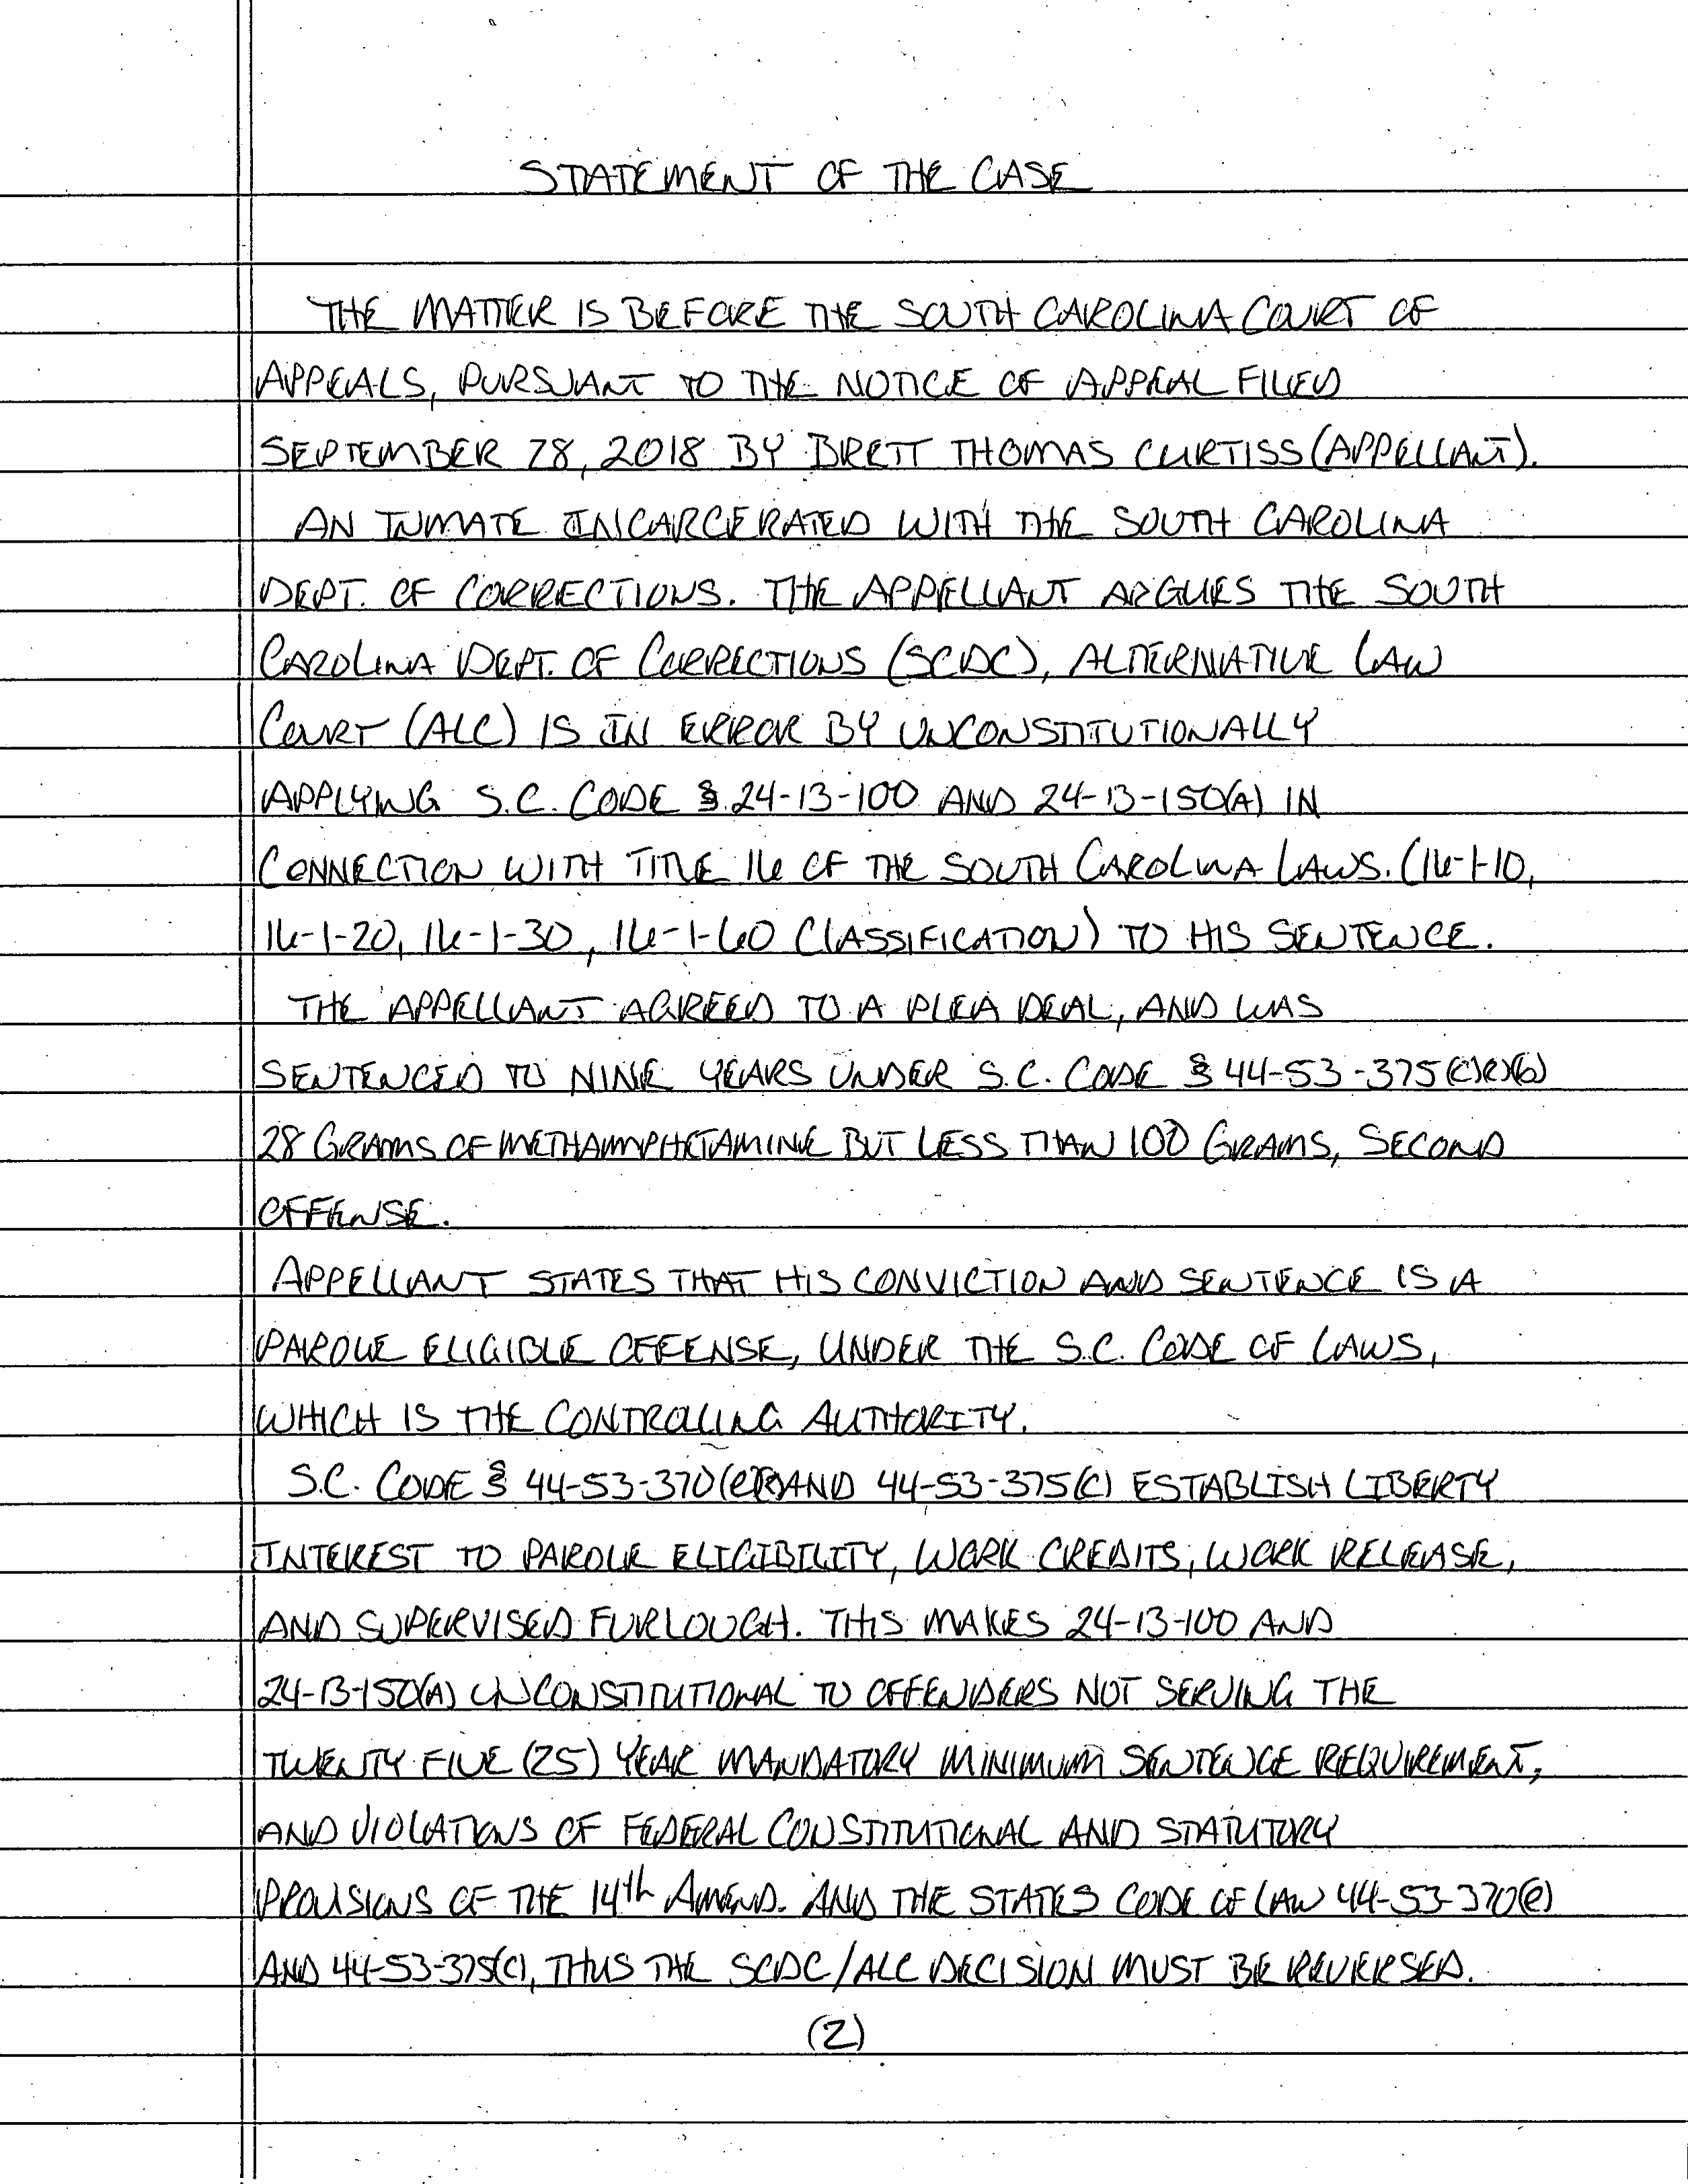 STATEMENT OF THE CASE
THE MATTER IS BEFORE THE SOUTH CAROLINA COURT OF
APPEALS, PURSUANT TO THE NOTICE OF APPEAL FILED
SEPTEMBER 28, 2018 BY BRETT THOMAS CURTISS (APPELLANT).
AN INMATE INCARCERATED WITH THE SOUTH CAROLINA
DEPT. OF CORRECTIONS. THE APPELLANT ARGUES THE SOUTH
CAROLINA DEPT. OF CORRECTIONS (SCDC), ALTERNATIVE LAW
COURT (ALC) IS IN ERROR BY UNCONSTITUTIONALLY
APPLYING S.C. CODE § 24-13-100 AND 24-13-150(A) IN
CONNECTION WITH TITLE 16 OF THE SOUTH CAROLINA LAWS. (16-1-10,
16-1-20, 16-1-30, 16-1-60 CLASSIFICATION) TO HIS SENTENCE.
THE APPELLANT AGREED TO A PLEA DEAL, AND WAS
SENTENCED TO NINE YEARS UNDER S.C. CODE § 44-53-375(C)(2)(b)
28 GRAMS OF METHAMPHETAMINE BUT LESS THAN 100 GRAMS, SECOND
OFFENSE.
APPELLANT STATES THAT HIS CONVICTION AND SENTENCE IS A
PAROLE ELIGIBLE OFFENSE, UNDER THE S.C. CODE OF LAWS,
WHICH IS THE CONTROLLING AUTHORITY.
S.C. CODE § 44-53-370(e) AND 44-53-375(C) ESTABLISH LIBERTY
INTEREST TO PAROLE ELIGIBILITY, WORK CREDITS, WORK RELEASE,
AND SUPERVISED FURLOUGH. THIS MAKES 24-13-100 AND
24-13-150(A) UNCONSTITUTIONAL TO OFFENDERS NOT SERVING THE
TWENTY FIVE (25) YEAR MANDATORY MINIMUM SENTENCE REQUIREMENT,
AND VIOLATIONS OF FEDERAL CONSTITUTIONAL AND STATUTORY
PROVISIONS OF THE 14th AMEND. AND THE STATES CODE OF LAW 44-53-370(e)
AND 44-53-375(C), THUS THE SCDC/ALC DECISION MUST BE REVERSED.
(2)